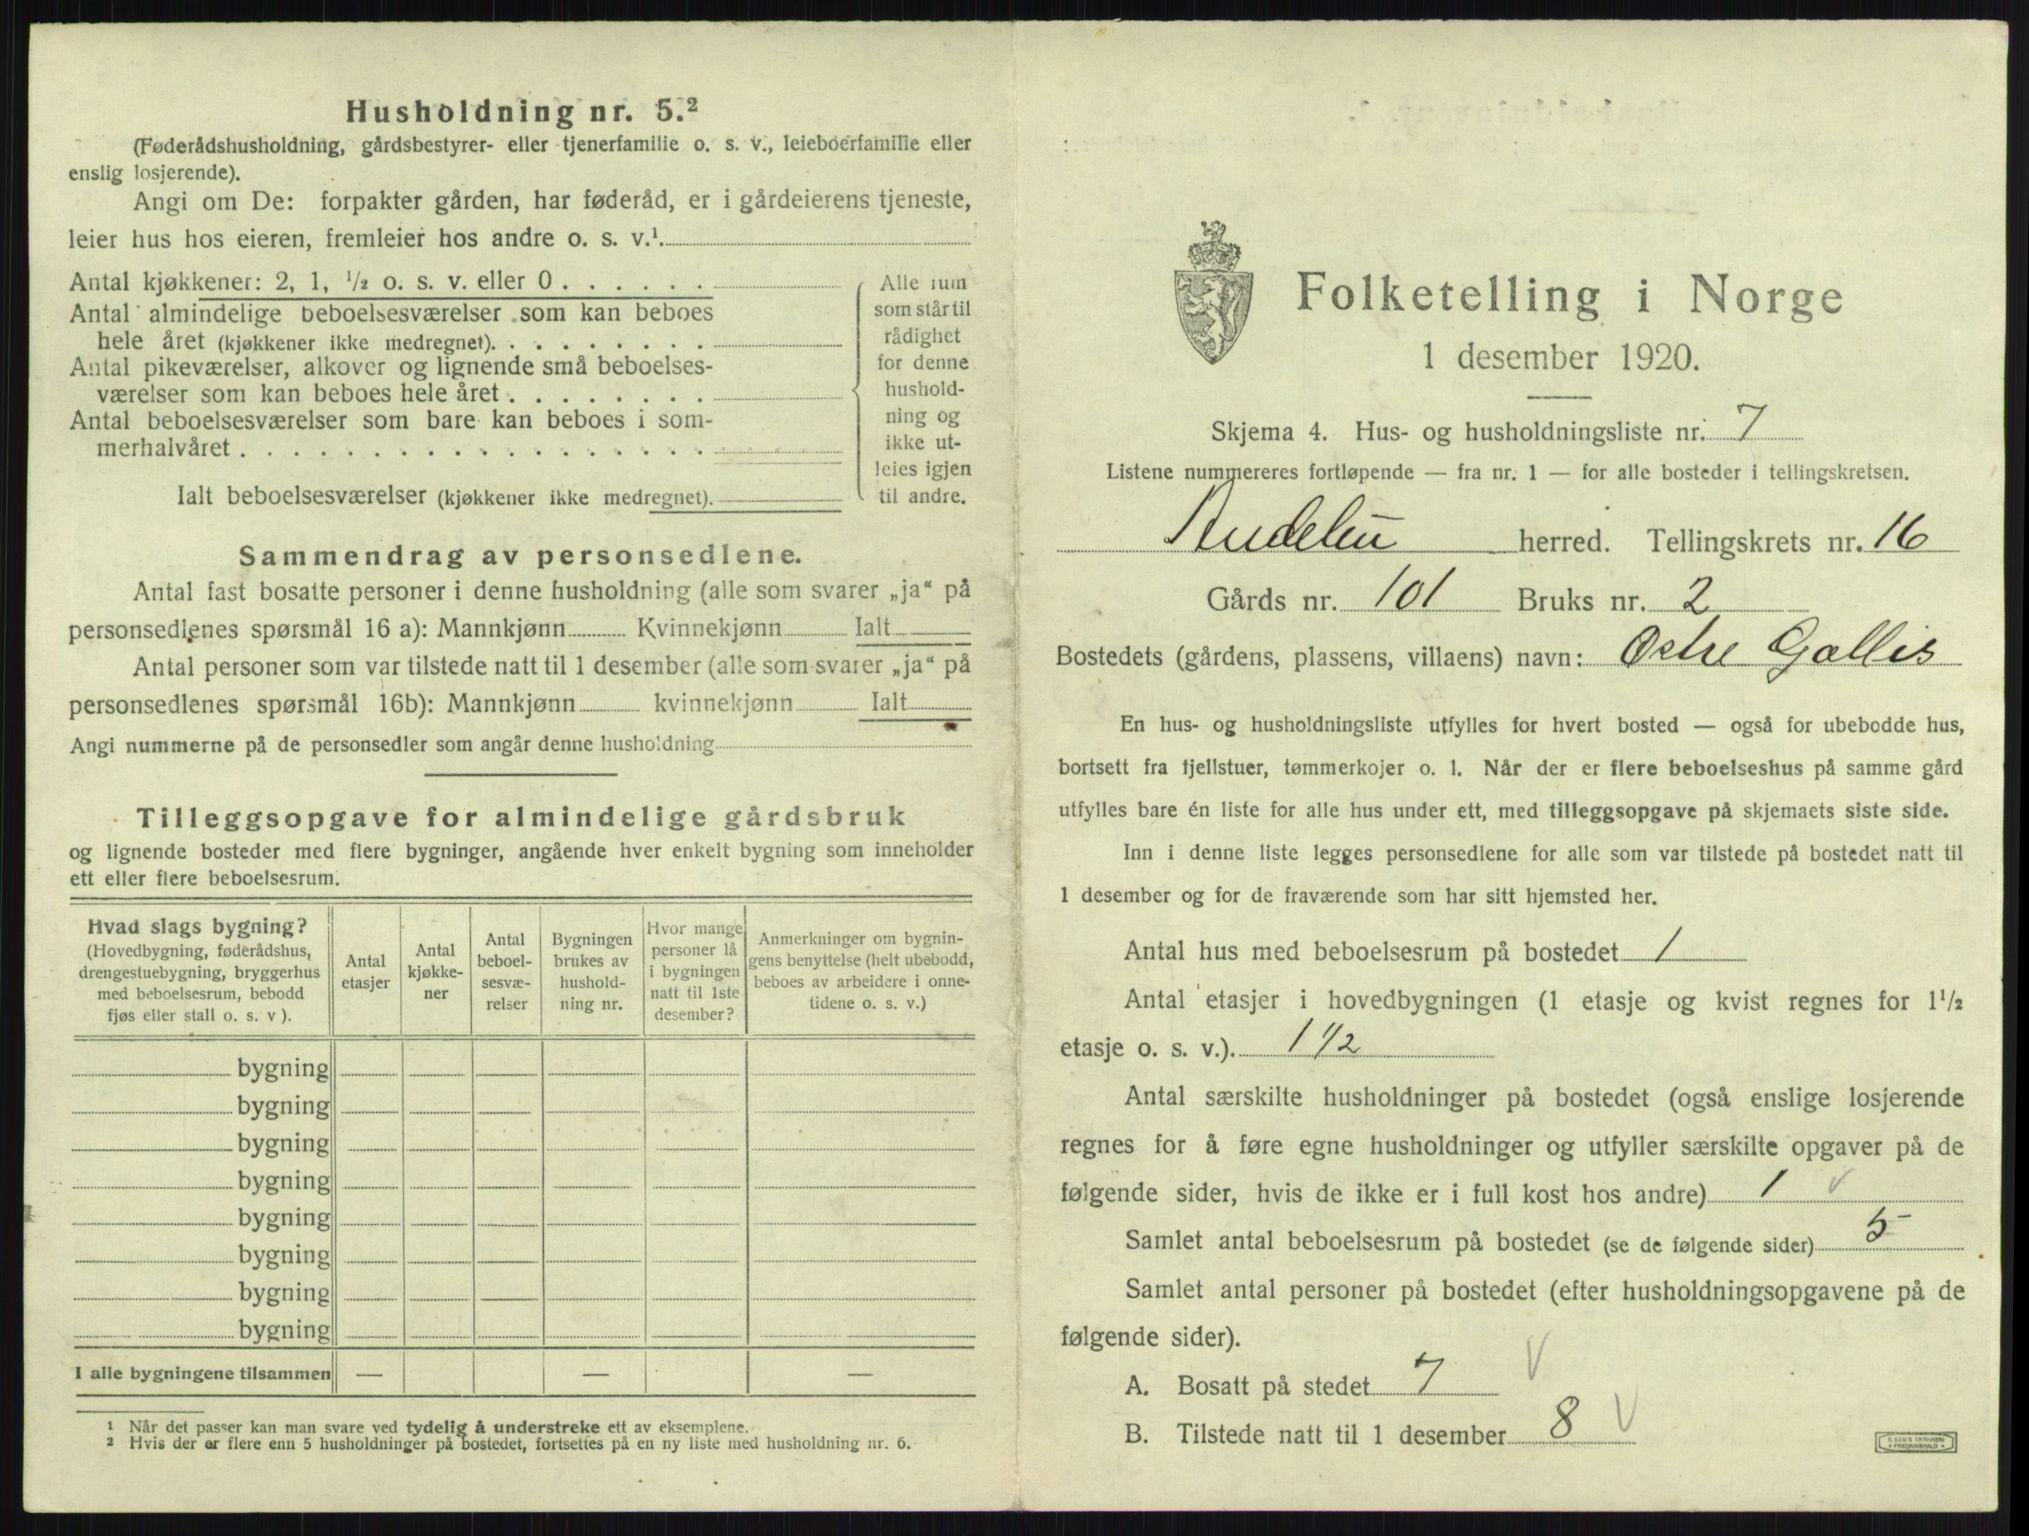 Husholdning nr. 5.²
(Føderådshusholdning, gårdsbestyrer- eller tjenerfamilie o. s. v., leieboerfamilie eller
enslig losjerende).
Angi om De: forpakter gården, har føderåd, er i gårdeierens tjeneste,
leier hus hos eieren, fremleier hos andre o. s. v.¹
Antal kjøkkener: 2, 1, ½ o. s. v. eller 0 . . . . . .
Antal almindelige beboelsesværelser som kan beboes
hele året (kjøkkener ikke medregnet). . . . . . . . .
Antal pikeværelser, alkover og lignende små beboelses-
værelser som kan beboes hele året . . . . . . . .
Antal beboelsesværelser som bare kan beboes i som-
merhalvåret . . . . . . . . . . . . . . . . . .
Ialt beboelsesværelser (kjøkkener ikke medregnet).
Alle rum
som står til
rådighet
for denne
hushold-
ning og
ikke ut-
leies igjen
til andre.
Sammendrag av personsedlene.
Antal fast bosatte personer i denne husholdning (alle som svarer „ja“ på
personsedlenes spørsmål 16 a): Mannkjønn Kvinnekjønn Ialt
Antal personer som var tilstede natt til 1 desember (alle som svarer „ja“ på
personsedlenes spørsmål 16b): Mannkjønn kvinnekjønn Ialt
Angi nummerne på de personsedler som angår denne husholdning
Tilleggsopgave for almindelige gårdsbruk
og lignende bosteder med flere bygninger, angående hver enkelt bygning som inneholder
ett eller flere beboelsesrum.
Hvad slags bygning?
(Hovedbygning, føderådshus,
drengestuebygning, bryggerhus
med beboelsesrum, bebodd
fjøs eller stall o. s. v ).
Antal
etasjer
Antal
kjøkke-
ner
Antal
beboel-
sesvæ-
relser
Bygningen
brukes av
hushold-
ning nr.
Hvor mange
personer lå
i bygningen
natt til 1ste
desember?
Anmerkninger om bygnin-
gens benyttelse (helt ubebodd,
beboes av arbeidere i onne-
tidene o. s. v.)
bygning
bygning
bygning
bygning
bygning
bygning
bygning
bygning
I alle bygningene tilsammen — — —
¹ Når det passer kan man svare ved tydelig å understreke ett av eksemplene.
² Hvis der er flere enn 5 husholdninger på bostedet, fortsettes på en ny liste med husholdning nr. 6.
Folketelling i Norge
1 desember 1920.
Skjema 4. Hus- og husholdningsliste nr. 7
Listene nummereres fortløpende — fra nr. 1 — for alle bosteder i tellingskretsen.
herred. Tellingskrets nr. 16
Gårds nr. 101 Bruks nr. 2
Bostedets (gårdens, plassens, villaens) navn: Østre Gallis
En hus- og husholdningsliste utfylles for hvert bosted — også for ubebodde hus,
bortsett fra fjellstuer, tømmerkojer o. l. Når der er flere beboelseshus på samme gård
utfylles bare én liste for alle hus under ett, med tilleggsopgave på skjemaets siste side.
Inn i denne liste legges personsedlene for alle som var tilstede på bostedet natt til
1 desember og for de fraværende som har sitt hjemsted her.
Antal hus med beboelsesrum på bostedet 1
Antal etasjer i hovedbygningen (1 etasje og kvist regnes for 1½
etasje o. s. v.). 1 1/2
Antal særskilte husholdninger på bostedet (også enslige losjerende
regnes for å føre egne husholdninger og utfyller særskilte opgaver på de
følgende sider, hvis de ikke er i full kost hos andre) 1 v
Samlet antal beboelsesrum på bostedet (se de følgende sider) 5
Samlet antal personer på bostedet (efter husholdningsopgavene på de
følgende sider).
A. Bosatt på stedet 7 v
B. Tilstede natt til 1 desember 8 v